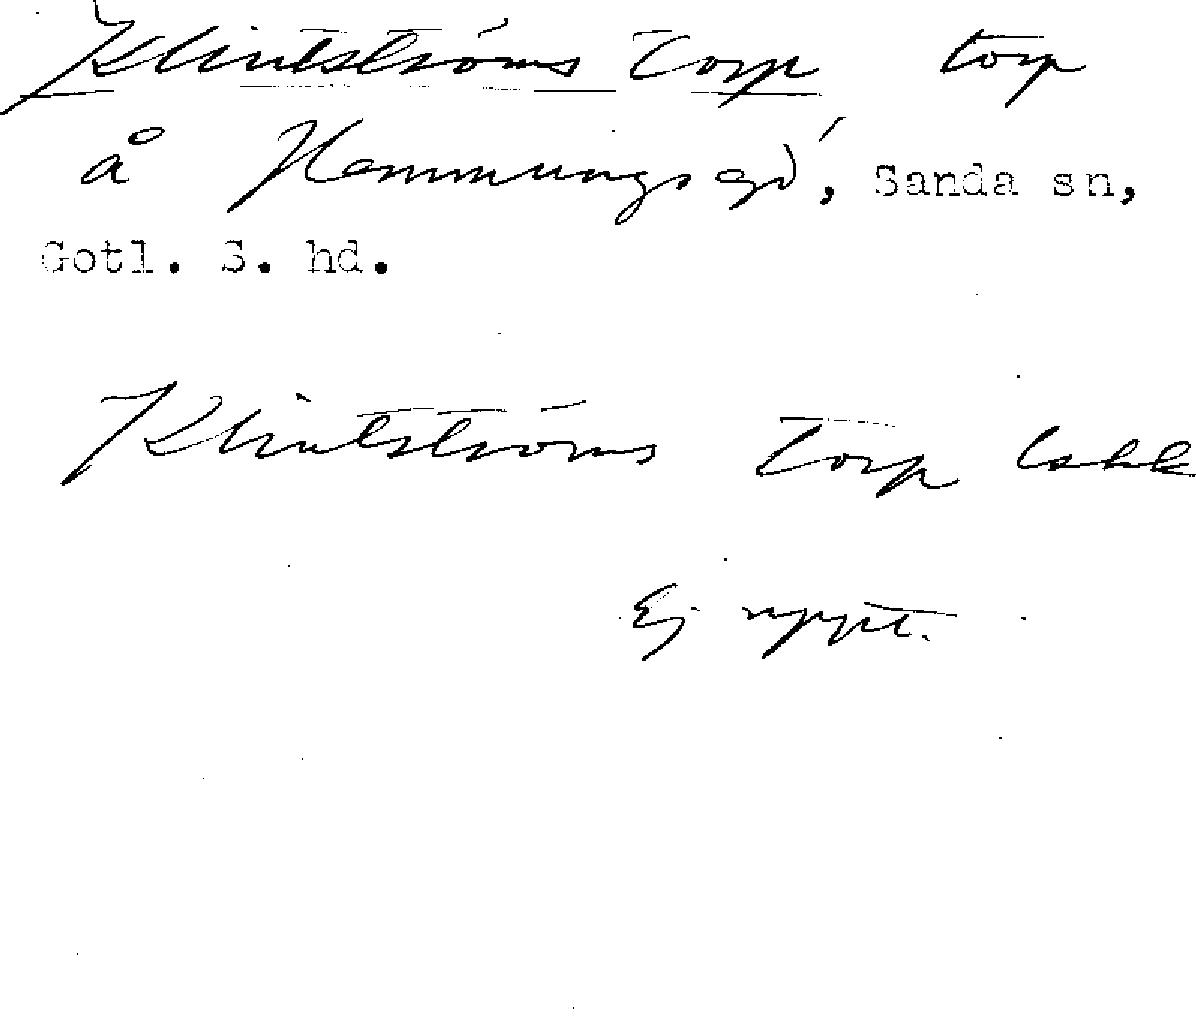 Klintströms Torp torp
å Hemmungs Sanda sn,
Gotl. S. hd.
Klintströms Torp
Ej uppt.